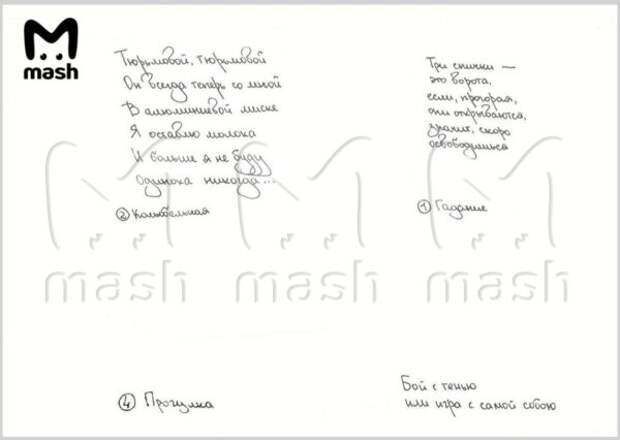 mash
Тюрьмовой, тюрьмовой
Он всегда теперь со мной
В алюминиевой миске
Я оставлю молока
И больше я не буду
одинока никогда...
② Колыбельная
Три спички —
это ворота,
если, прогорая,
они открываются,
значит, скоро
освободишься
① Гадание
mash mash mash
④ Прогулка
Бой с тенью
или игра с самой собою